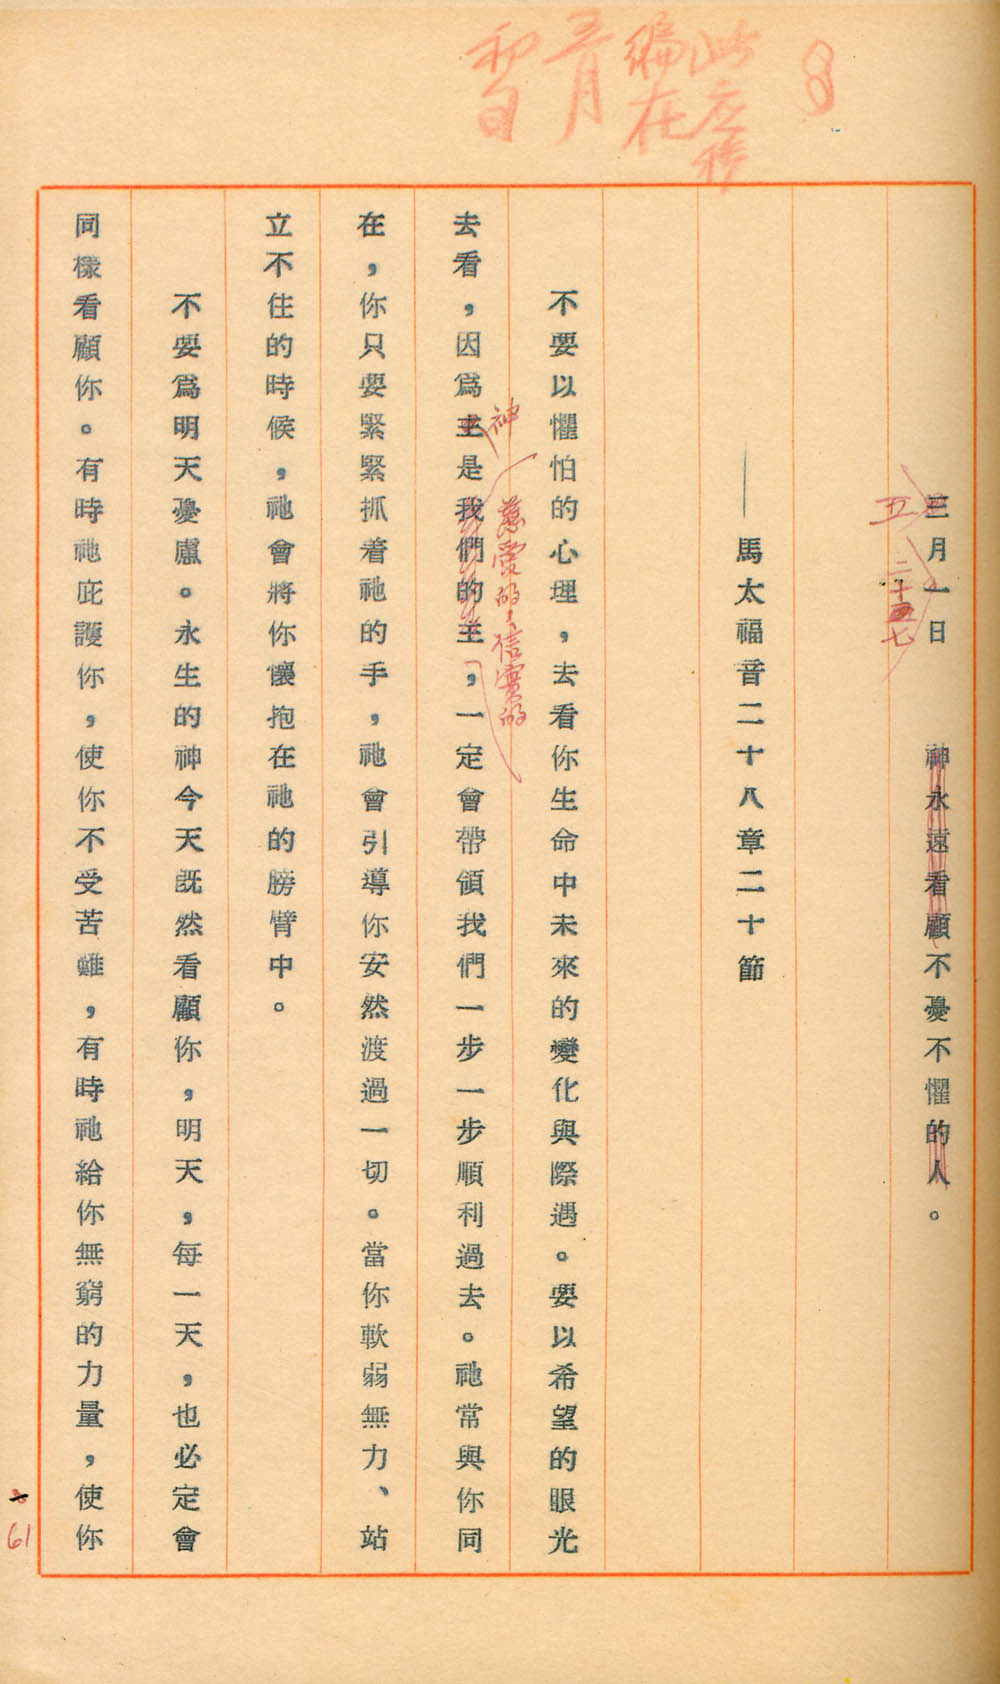 8
此应移
编在
五月
初旬
三月一日　　神永遠看顧不憂不懼的人。
五　二十七
——馬太福音二十八章二十節
不要以懼怕的心理，去看你生命中未來的變化與際遇。要以希望的眼光
神　慈愛的，信實的
去看，因為主是我們的主，一定會帶領我們一步一步順利過去。祂常與你同
在，你只要緊緊抓着祂的手，祂會引導你安然渡過一切。當你軟弱無力、站
立不住的時候，祂會將你懷抱在祂的膀臂中。
不要為明天憂慮。永生的神今天既然看顧你，明天，每一天，也必定會
同樣看顧你。有時祂庇護你，使你不受苦難，有時祂給你無窮的力量，使你
61